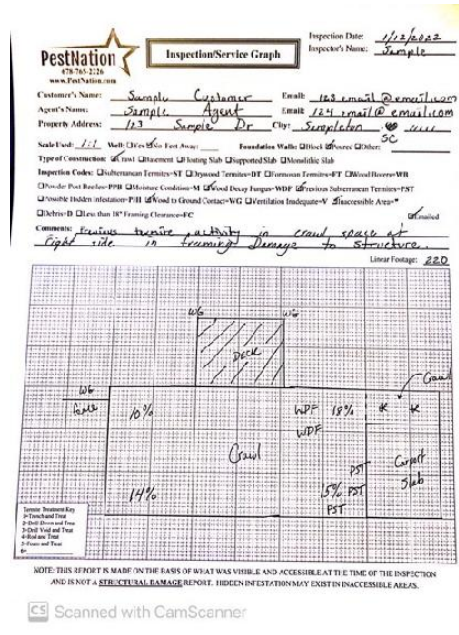 Inspection Date: 1/12/2022
Inspector's Name: Sample
PestNation
478-765-2126
www.PestNation.com
Inspection/Service Graph
Customer's Name: Sample Customer Email: 123 email@email.com
Agent's Name: Sample Agent Email: 124 email@email.com
Property Address: 123 Sample Dr City: Sampleton
SC
Scale Used: 1:1 Well: Yes No Feet Away: Foundation Walls: Block Poured Other:
Type of Construction: Crawl Basement Floating Slab Supported Slab Monolithic Slab
Inspection Codes: Subterranean Termites-ST Drywood Termites-DT Formosan Termites-FT Wood Borers-WB
Powder Post Beetles-PPB Moisture Condition-M Wood Decay Fungus-WDF Previous Subterranean Termites-PST
Possible Hidden Infestation-PHI Wood to Ground Contact-WG Ventilation Inadequate-V Inaccessible Area-*
Debris-D Less than 18" Framing Clearance-FC
Emailed
Comments: Previous termite activity in crawl space at
Right side in framing Damage to structure.
Linear Footage: 220
WG WG
Deck
Crawl
WG
10% WDF 18% * *
WDF
Crawl
Carport
Slab
PST
14% 15% PST
PST
Termite Treatment Key
1-Trench and Treat
2-Drill Down and Treat
3-Drill Void and Treat
4-Rod and Treat
5-Foam and Treat
6-
NOTE: THIS REPORT IS MADE ON THE BASIS OF WHAT WAS VISIBLE AND ACCESSIBLE AT THE TIME OF THE INSPECTION
AND IS NOT A STRUCTURAL DAMAGE REPORT. HIDDEN INFESTATION MAY EXIST IN INACCESSIBLE AREAS.
CS Scanned with CamScanner